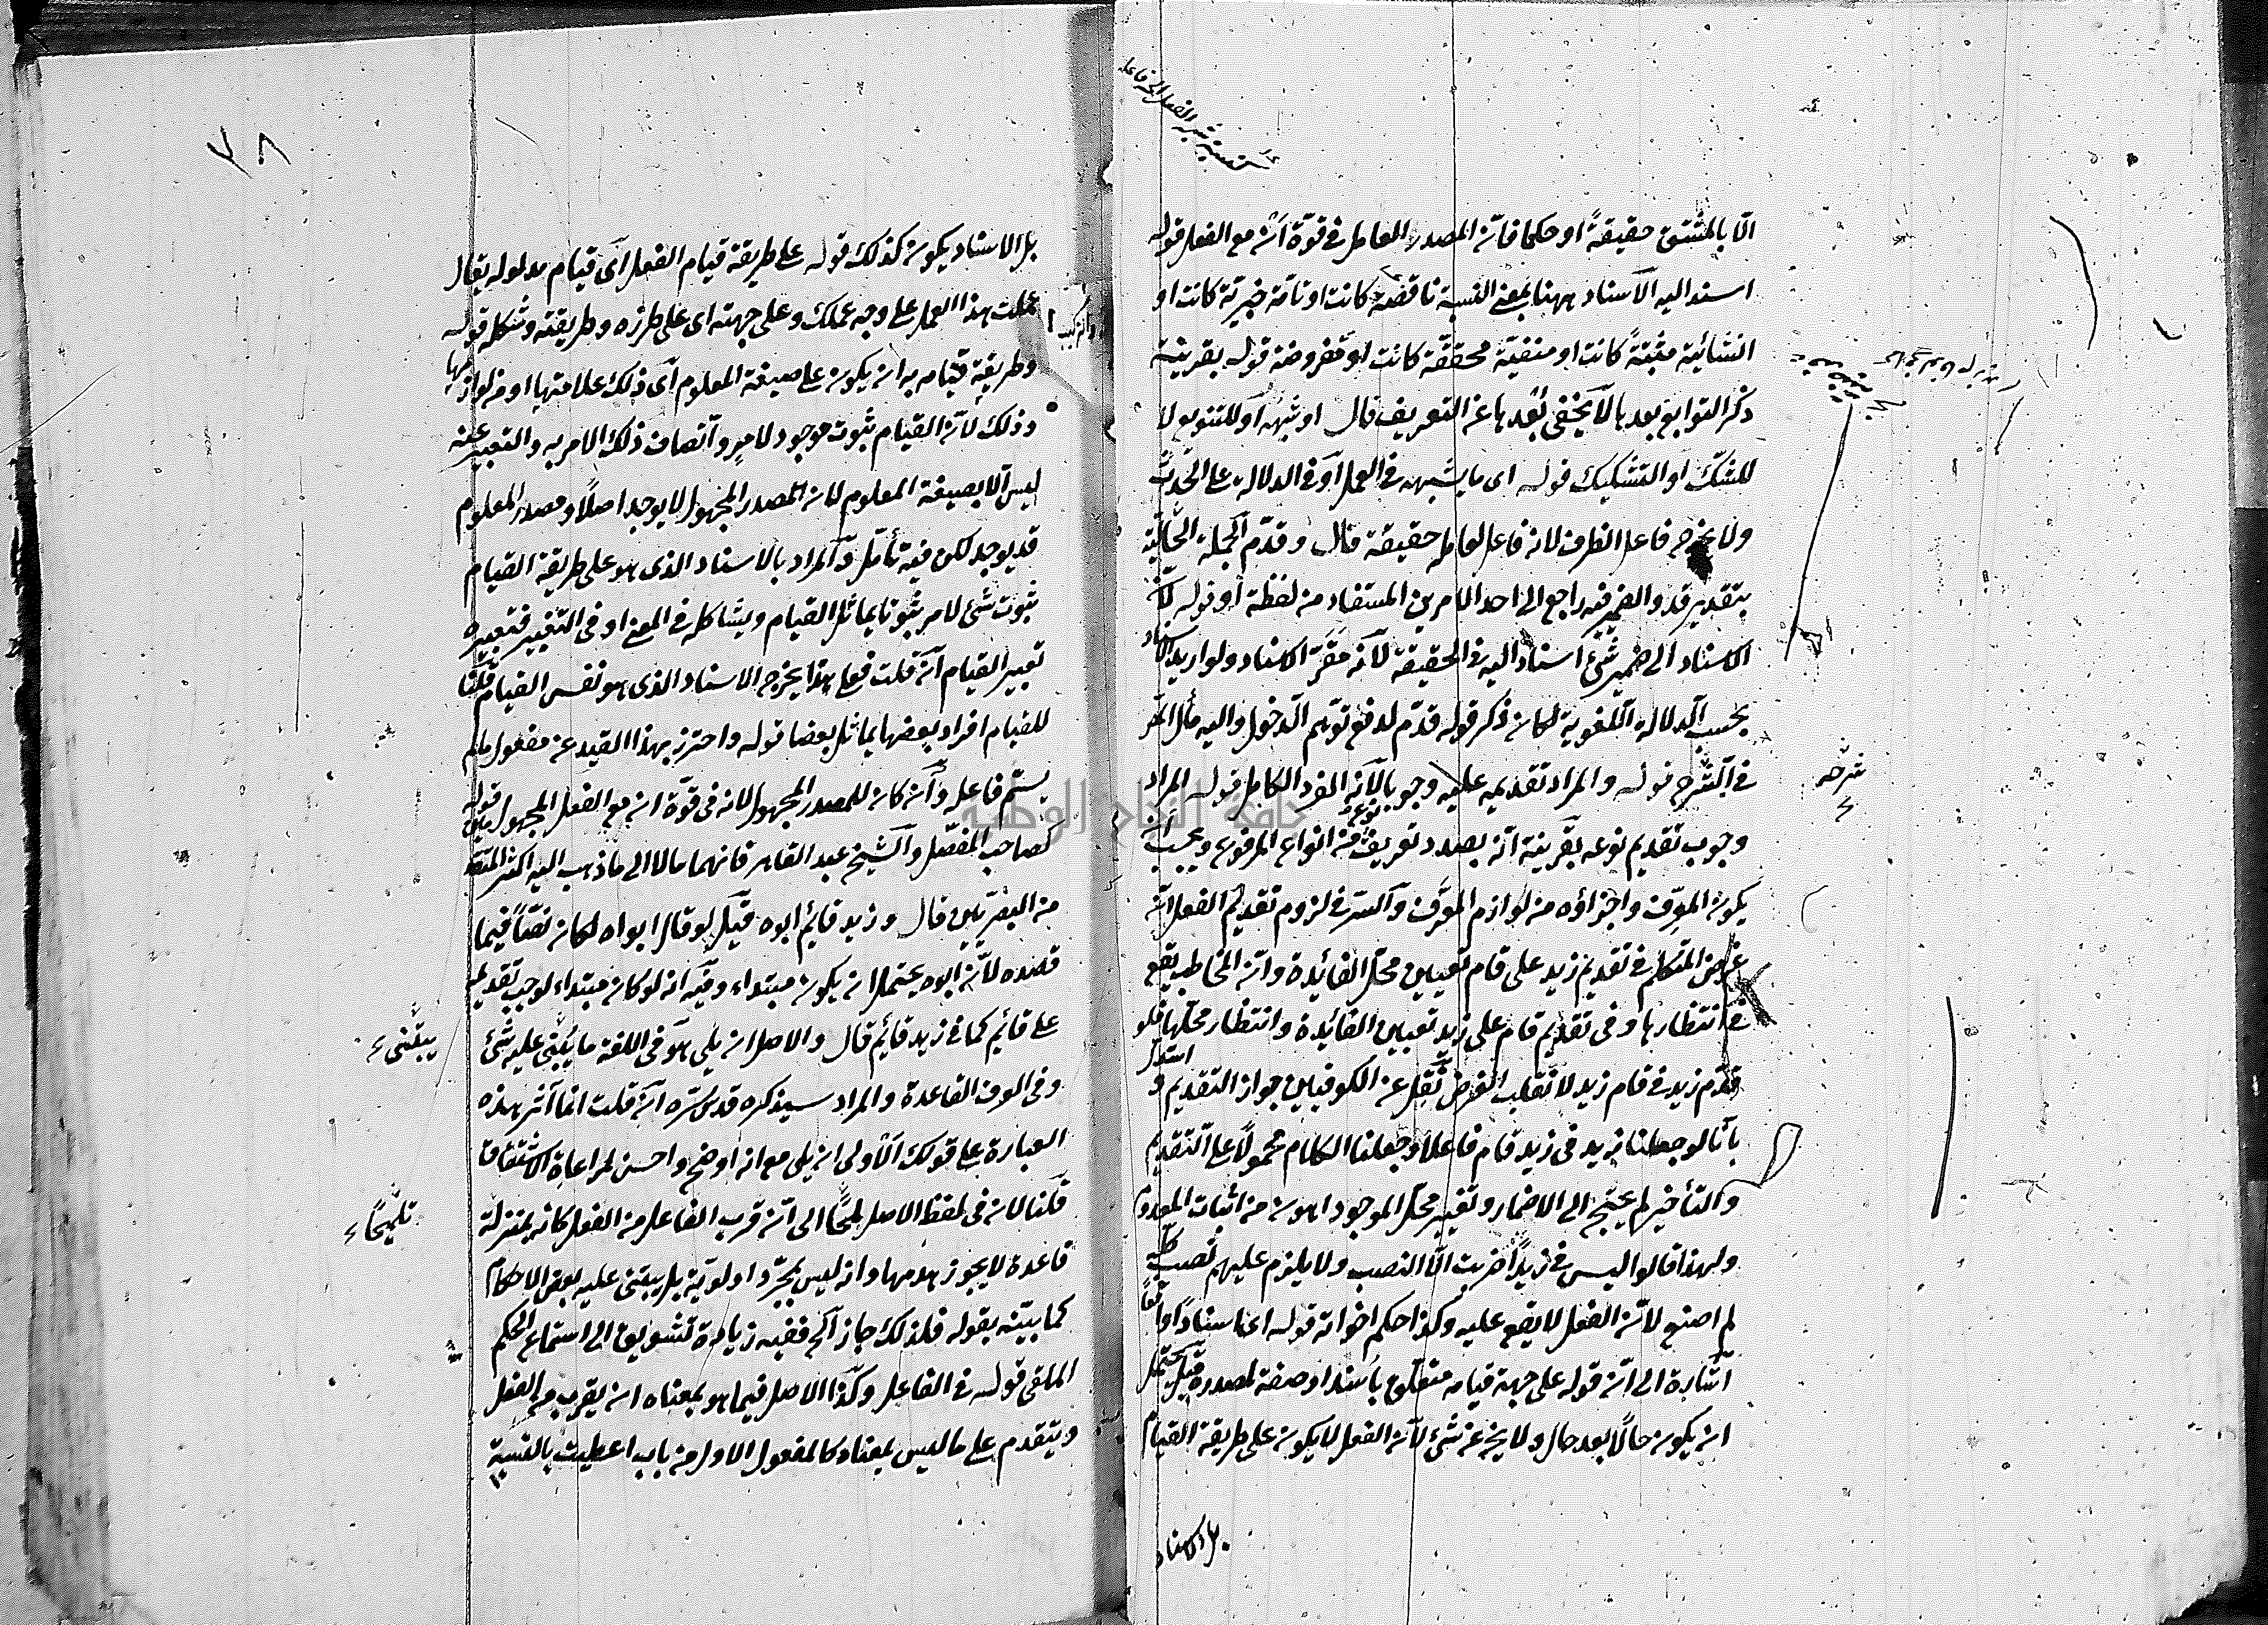 الا بالمشتق حقيقةً او حكما فان المصدر العامل فى قوة ان مع الفعل قوله
اسند اليه الاسناد ههنا بمعنى النسبة ناقصة كانت او تامة خبرية كانت او
انشائية مثبتةً كانت او منفيّة محققّة كانت او مفروضة قوله بقرينة
ذكر التوابع بعد ها لا يخفى بُعدها عن التعريف قال او شبهه او للتنويع لا
للشك او التشكيك قوله اى ما يشبهه فى العمل او فى الدلالة على الحدث
ولا يخرج فاعل الظرف لانه فاعل لعامله حقيقة قال وقدّم الجملة الحاليّة
بتقدير قد والضمير فيه راجع الى احد الامرين المستفاد من لفظة او قوله لان
الاسناد الى ضمير شئ اسناد اليه فى الحقيقة لانه مَقَرّ الاسناد ولو اريد الاسناد
بحسب الدلالة اللغوية لكان ذكر قوله قدّم لدفع توهم الدخول واليه مال
فى الشرح قوله والمراد تقديمه عليه وجوبا لانه الفرد الكامل قوله المراد
وجوب تقديم نوعه بقرينة انه بصدد تعريف نوع من انواع المرفوع ويجب ان
يكون المعرِّف واجزاؤه من لوازم المعرَّف والسرّ فى لزوم تقديم الفعل انّ
غرض المتكلم فى تقديم زيد على قام تعيين محل الفائدة وان المخاطب يقع
فى انتظارها وفى تقديم قام على زيد تعيين الفائدة وانتظار محلها فلو
قدّم زيد فى قام زيد لانقلب الغرض نُقِل عن الكوفيين جواز التقديم و استدل
بانا لو جعلنا زيد فى زيد قام فاعلا وجعلنا الكلام محمولاً على التقديم
والتأخير لم يحتج الى الاضمار وتغيير محل الموجود اهون من اثبات المعدوم
ولهذا قالوا ليس فى زيدًا ضربت الّا النصب ولا يلزم عليهم نصب كل
لم اصنع لانّ الفعل لا يقع عليه وكذا حكم اخواته قوله اى اسناداً واقعاً
اشارة الى انّ قوله على جهة قيامه متعلق باسند او صفة لمصدره قيل يحتمل
ان يكون حالاً بعد حال ولا يخ عن شئ لان الفعل لا يكون على طريقة القيام
بل الاسناد
شرح
بل الاسناد يكون كذلك قوله على طريقة قيام الفعل اى قيام مدلوله يقال
عملت هذا العمل على وجه عملك وعلى جهته اى على طرزه وطريقته وشكله قوله
وطريقة قيامه به ان يكون على صيغة المعلوم اى ذلك علامتها او من لوازمها
وذلك لان القيام ثبوت موجود لامرٍ واتصاف ذلك الامر به والتعبير عنه
ليس الا بصيغة المعلوم لان المصدر المجهول لا يوجد اصلاً ومصدر المعلوم
قد يوجد لكن فيه تأمّل والمراد بالاسناد الذى هو على طريقة القيام
ثبوت شئ لامر ثبوتا يماثل القيام ويشاكله فى المعنى او فى التغيير فتعبيره
تعبير القيام ان قلت فعلى هذا يخرج الاسناد الذى هو نفس القيام قلنا
للقيام افراد بعضها يماثل بعضا قوله واحترز بهذا القيد عن مفعول ما لم
يسمّ فاعله وان كان للمصدر المجهول لانه فى قوة ان مع الفعل المجهول قوله
كصاحب المفصّل والشيخ عبد القاهر فانهما مالا الى ما ذهب اليه اكثر المتقدمين
من البصريّين قال وزيد قائم ابوه قيل لو قال ابواه لكان نصّاً فيما
قصده لانّ ابوه يحتمل ان يكون مبتداء وفيه انه لو كان مبتداء لوجب تقديمه
على قائم كما فى زيد قائم قال والاصل ان يلى هو فى اللغة ما يُبتنى عليه شئ
وفى العرف القاعدة والمراد سيذكره قدس سّره ان قلت انما آثر هذه
العبارة على قولك الاَولى ان يلى مع انه اوضح واحسن لمراعاة الاشتقاق
قلنا لان فى لفظ الاصل تلميحًا الى انّ قرب الفاعل من الفعل كانه بمنزلة
قاعدة لا يجوز هدمها وانه ليس بمجرّد اولويّة بل يبتنى عليه بعض الاحكام
كما بيّنه بقوله فلذلك جاز الخ ففيه زيادة تشويق الى استماع الحكم
الملقى قوله فى الفاعل وكذا الاصل فيما هو بمعناه ان يقرب من الفعل
ويتقدم على ما ليس بمعناه كالمفعول الاول من باب اعطيت بالنسبة
يبتنى
تلميحًا
٧٨